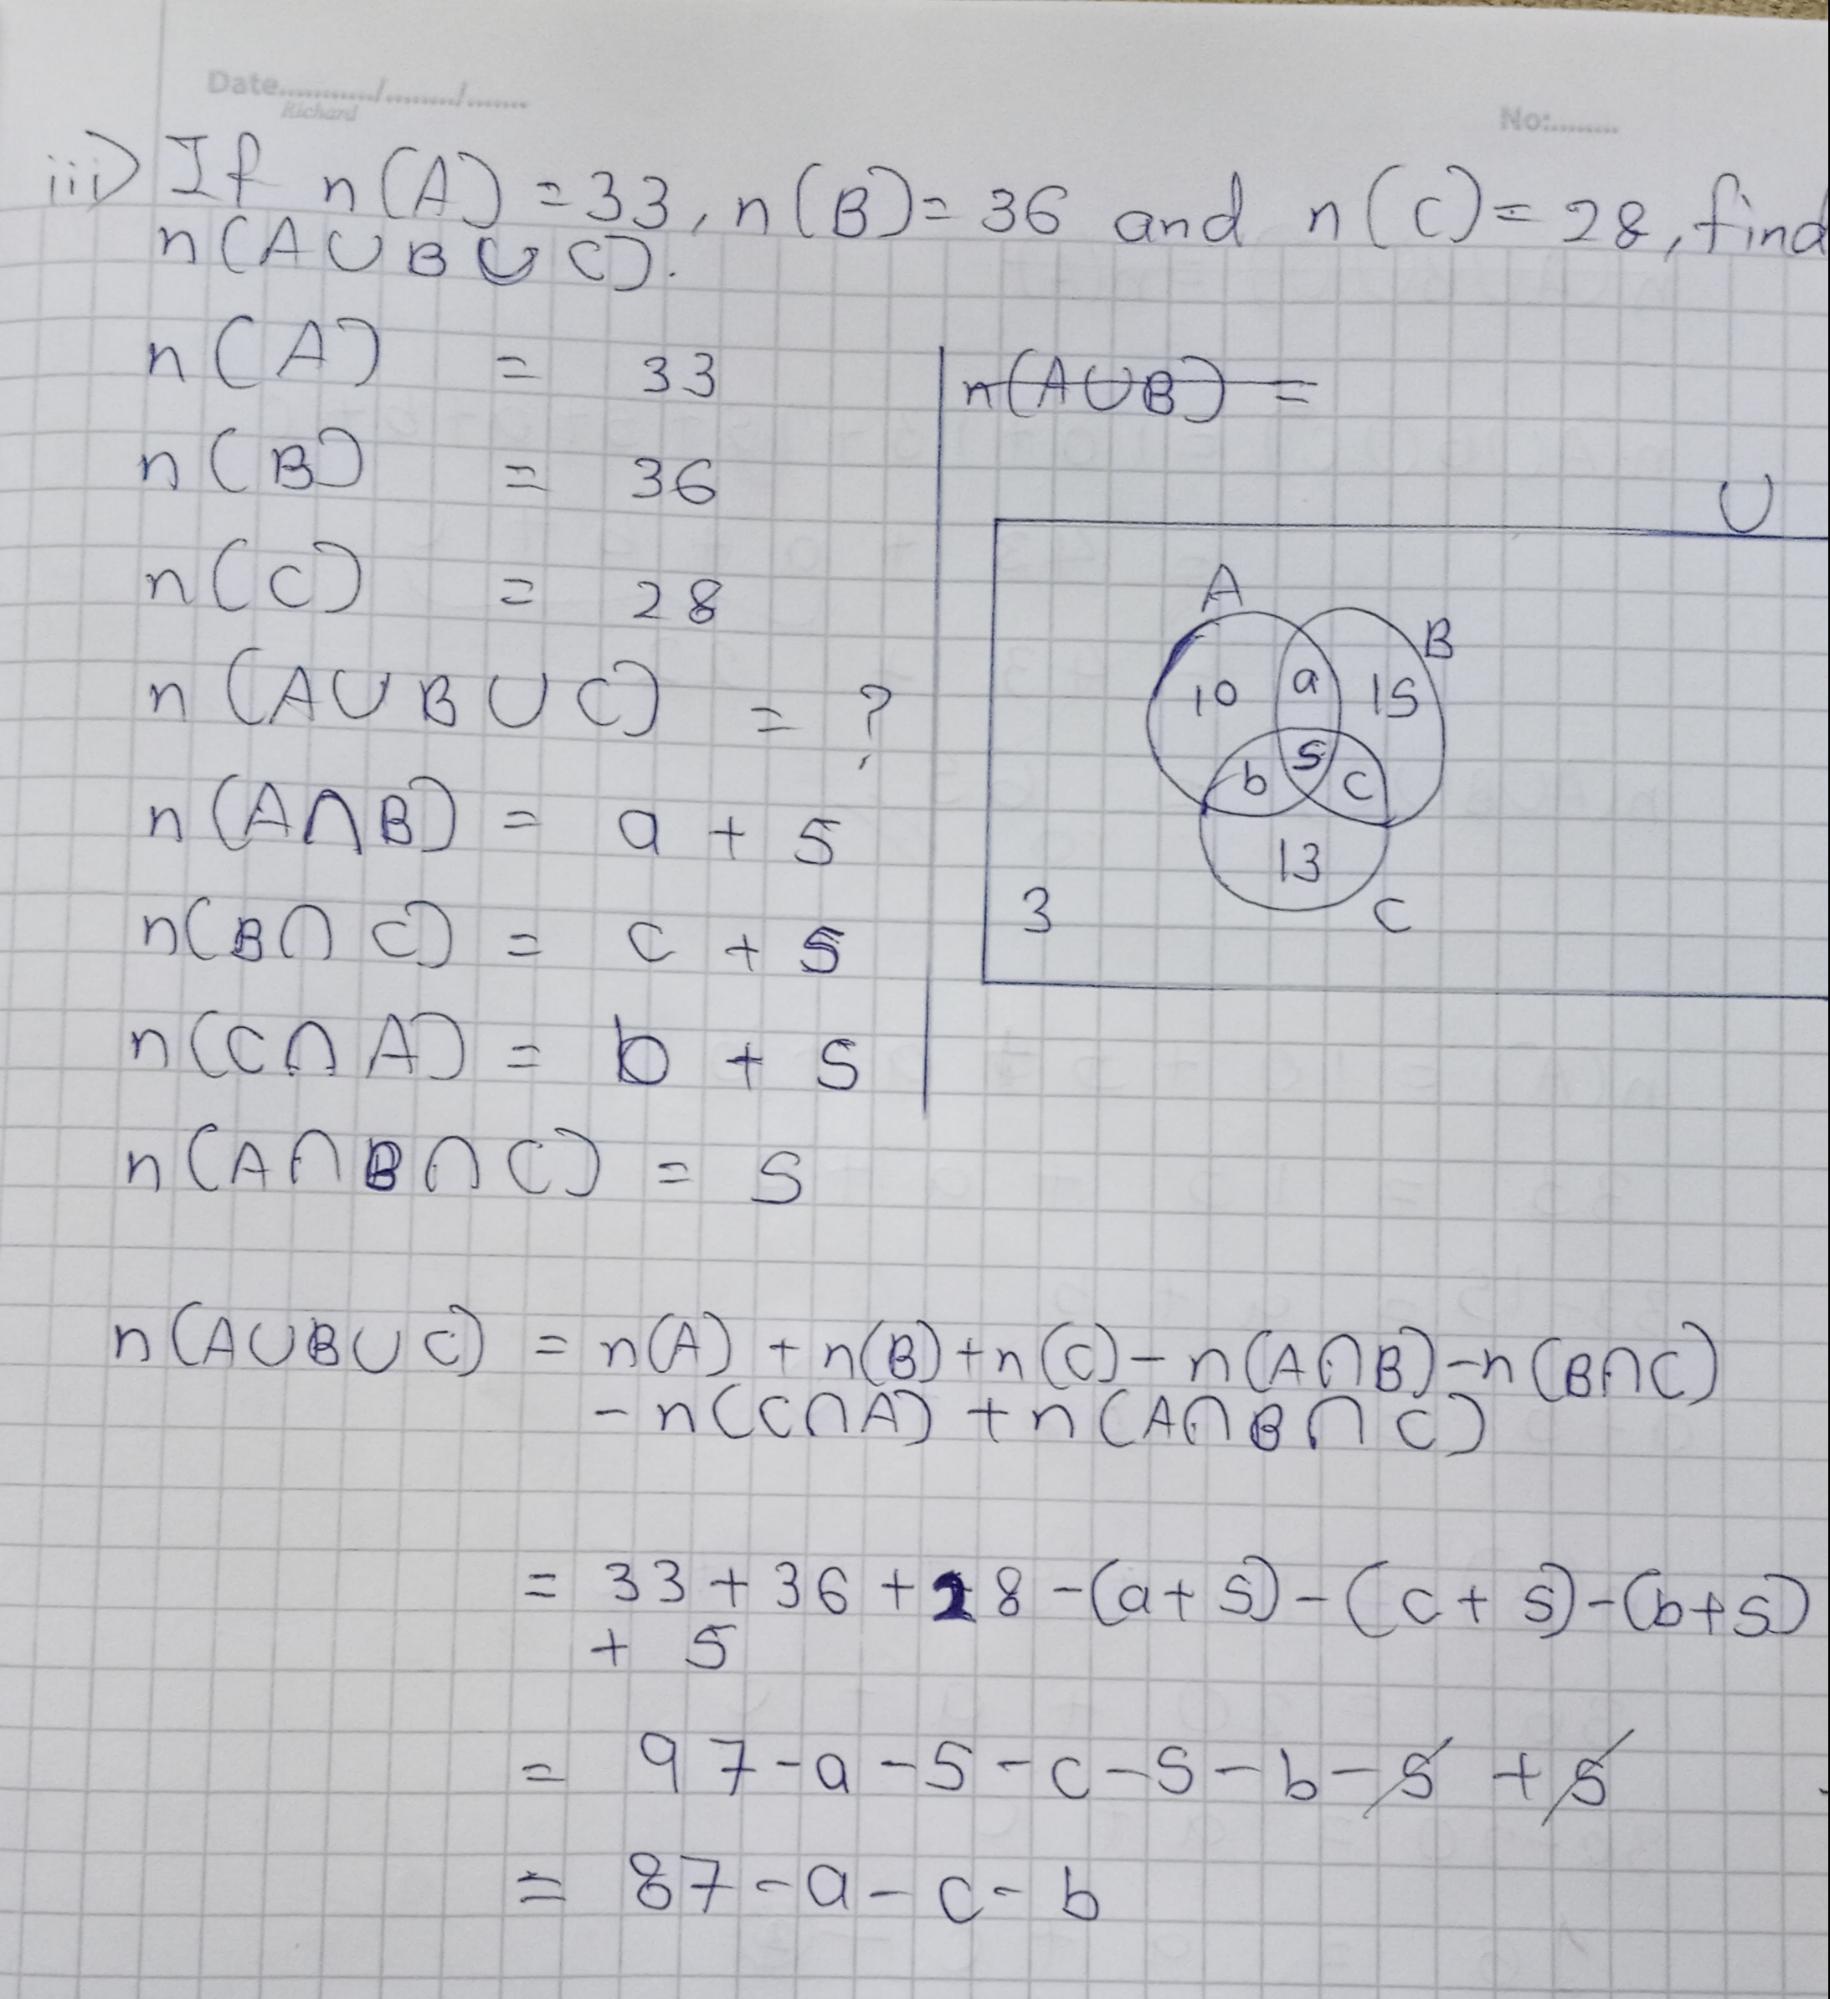 Date............/........./.......
Richard
No:.........
iii) If n(A) = 33, n(B) = 36 and n(C) = 28, find
n(A∪B∪C).
n(A) = 33
n(B) = 36
n(C) = 28
n(A∪B∪C) = ?
n(A∩B) = a + 5
n(B∩C) = c + 5
n(C∩A) = b + 5
n(A∩B∩C) = 5
n(A∪B) =
U
A
B
10 a 15
5
b c
13
3
C
n(A∪B∪C) = n(A) + n(B) + n(C) - n(A∩B) - n(B∩C)
- n(C∩A) + n(A∩B∩C)
= 33 + 36 + 28 - (a + 5) - (c + 5) - (b + 5)
+ 5
= 97 - a - 5 - c - 5 - b - 5 + 5
= 87 - a - c - b